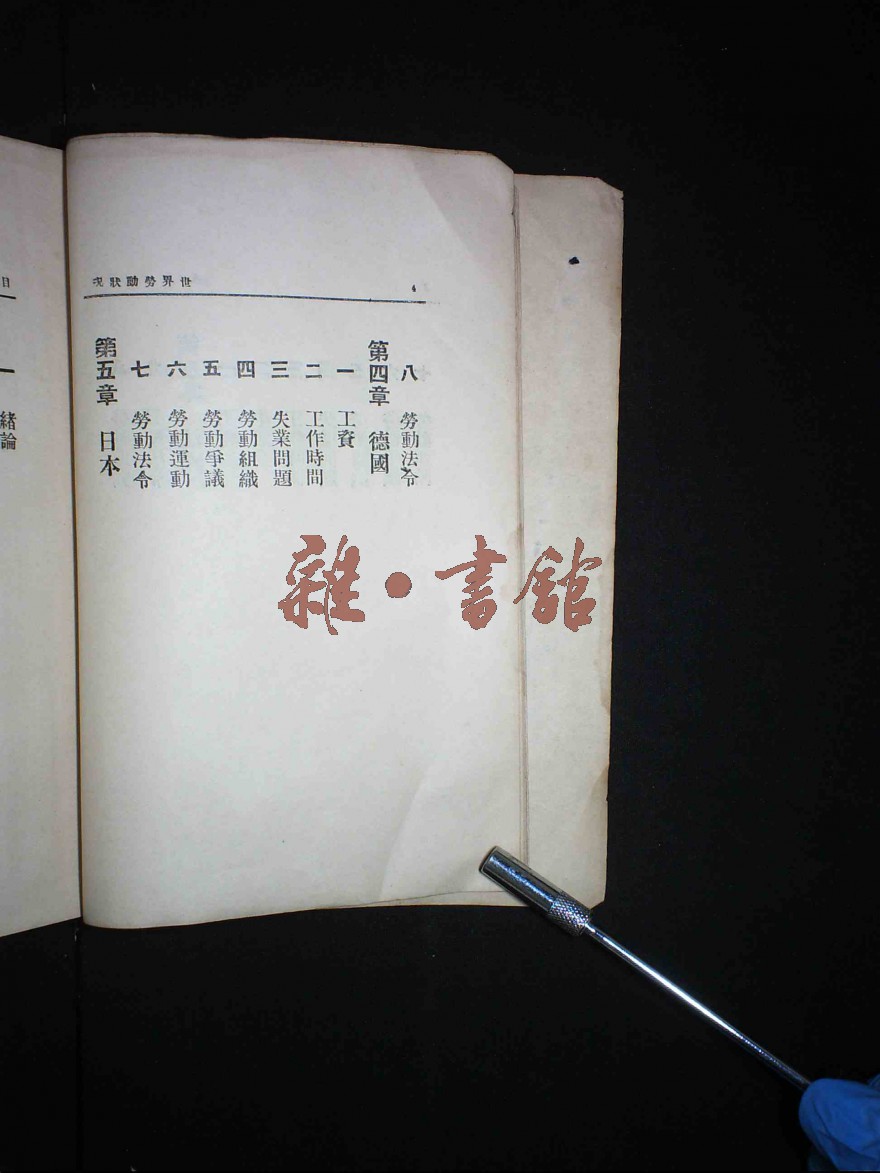 世界勞動狀況
4
八 勞動法令
第四章 德國
一 工資
二 工作時間
三 失業問題
四 勞動組織
五 勞動爭議
六 勞動運動
七 勞動法令
第五章 日本
目
一 緒論
雜·書館